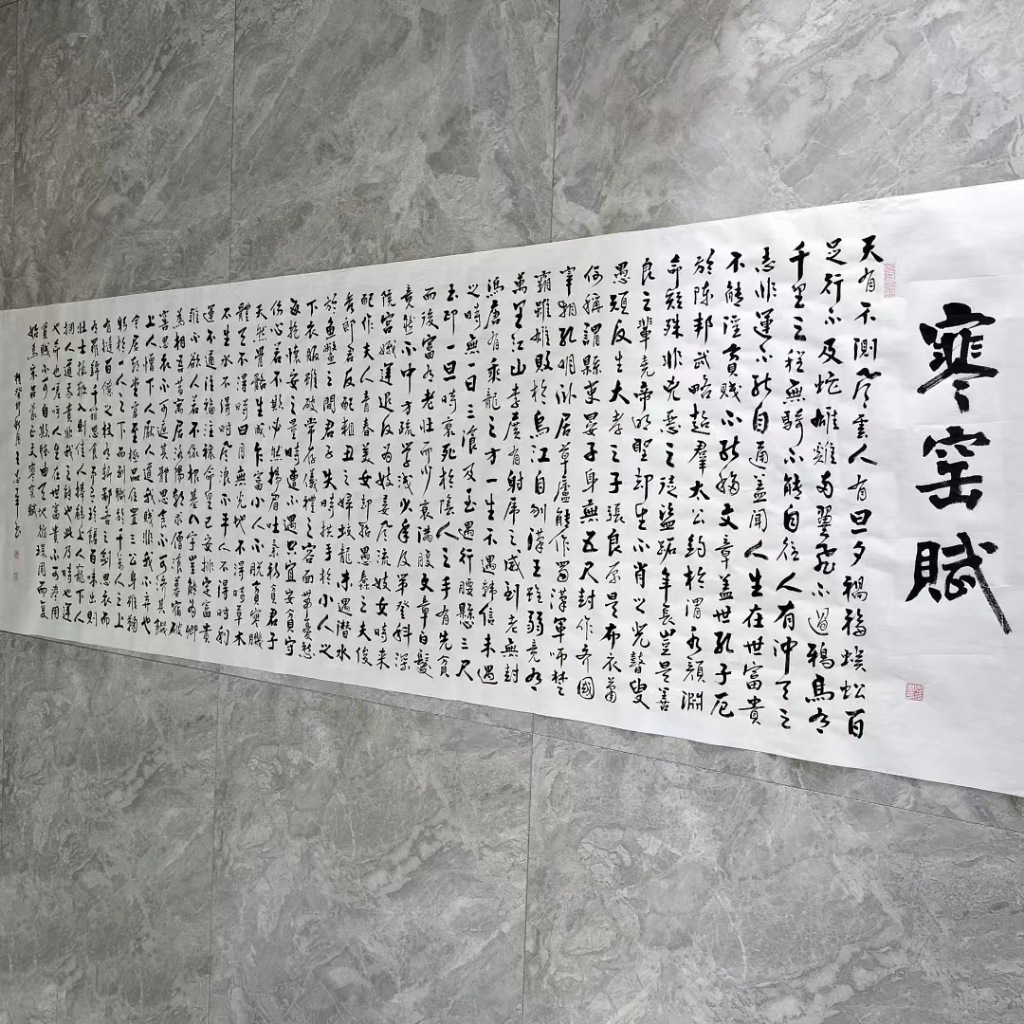 寒窑賦
天有不測風雲人有旦夕禍福蜈蚣百
足行不及蛇雄雞兩翼飛不過鴉馬有
千里之程無騎不能自往人有沖天之
志非運不能自通盖聞人生在世富貴
不能淫貧賤不能移文章盖世孔子厄
於陳邦武略超羣太公釣於渭水顏淵
命短殊非兇惡之徒盜跖年長豈是善
良之輩堯帝明聖却生不肖之兒瞽叟
愚頑反生大孝之子張良原是布衣蕭
何稱謂縣吏晏子身無五尺封作齐國
宰相孔明卧居草廬能作蜀漢軍師楚
霸雖雄敗於烏江自刎漢王雖弱竟有
萬里江山李廣有射虎之威到老無封
馮唐有乘龍之才一生不遇韓信未遇
之時無一日三湌及至遇行腰懸三尺
玉印一旦時衰死於陰人之手有先貧
而後富有老壯而少衰滿腹文章白髮
竟然不中才疏學淺少年及第登科深
院宮娥運退反為妓妾風流妓女時来
配作夫人青春美女却招愚蠢之夫俊
秀郎君反配粗丑之婦蛟龍未遇潜水
於魚鱉之間君子失時拱手於小人之
下衣服雖破常存儀禮之容面帶憂愁
每抱懷安之量時遭不遇只宜安貧守
份心若不欺必然揚眉吐氣初貧君子
天然骨骼生成乍富小人不脱貧寒肌
體天不得時日月無光地不得時草木
不生水不得時風浪不平人不得時利
運不通注福注禄命里已安排定富貴
誰不欲人若不依根基八字豈能為卿
為相吾昔寓居洛陽朝求僧湌暮宿破
窑思衣不可遮其體思食不可濟其饑
上人憎下人厭人道我賤非我不弃也
今居朝堂官至極品位置三公身雖鞠
躬於一人之下而列職於千萬人之上
有撻百僚之杖有斬鄙吝之劍思衣而
有羅錦千箱思食而有珍饈百味出則
壯士執鞭入則佳人捧觴上人寵下人
擁人道我貴非我之能也此乃時也運
也命也嗟呼人生在世富貴不可盡用
貧賤不可自欺聽由天地循環周而復
始焉宋吕蒙正文寒窑賦
癸卯 書